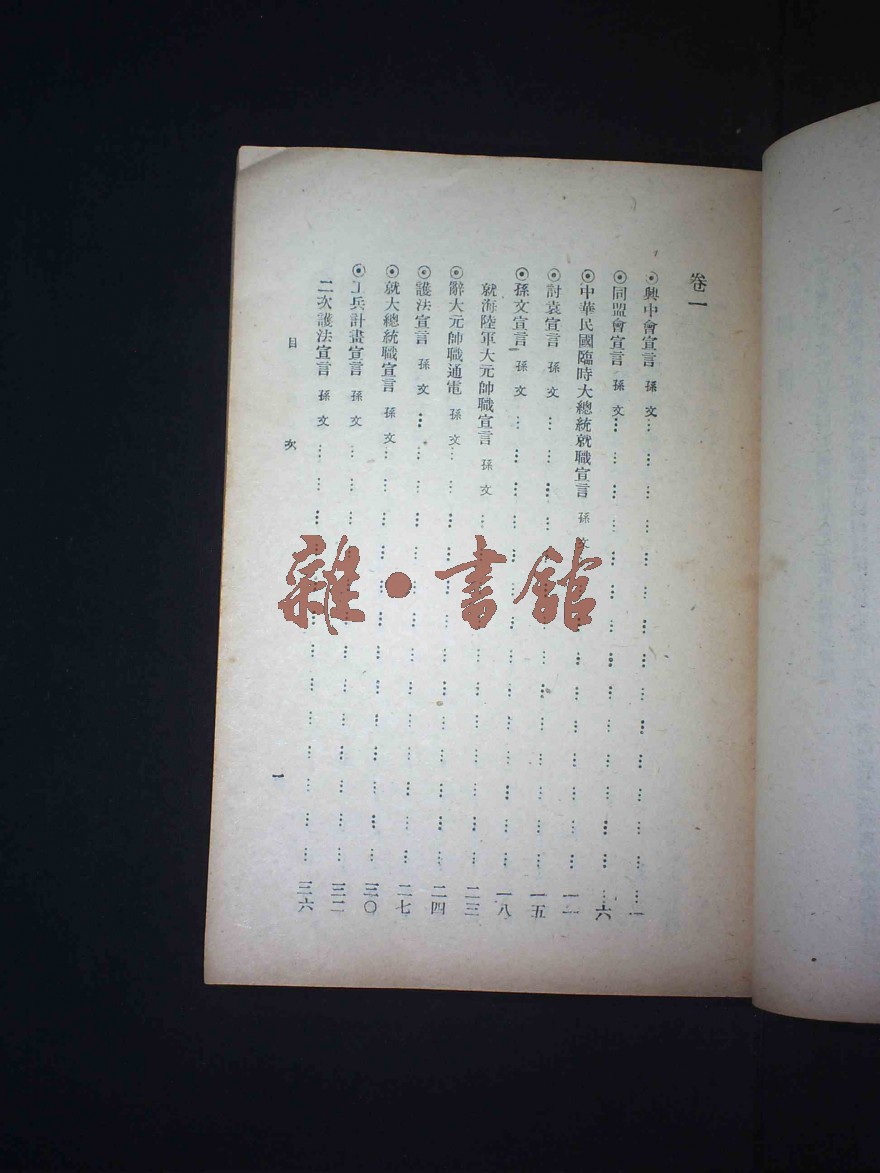 卷一
⊙興中會宣言 孫文……一
⊙同盟會宣言 孫文……六
⊙中華民國臨時大總統就職宣言 孫文……一一
⊙討袁宣言 孫文……一五
⊙孫文宣言 孫文……一八
就海陸軍大元帥職宣言 孫文……二三
⊙辭大元帥職通電 孫文……二四
⊙護法宣言 孫文……二七
⊙就大總統職宣言 孫文……三〇
⊙工兵計畫宣言 孫文……三二
二次護法宣言 孫文……三六
目次
一
雜·書館